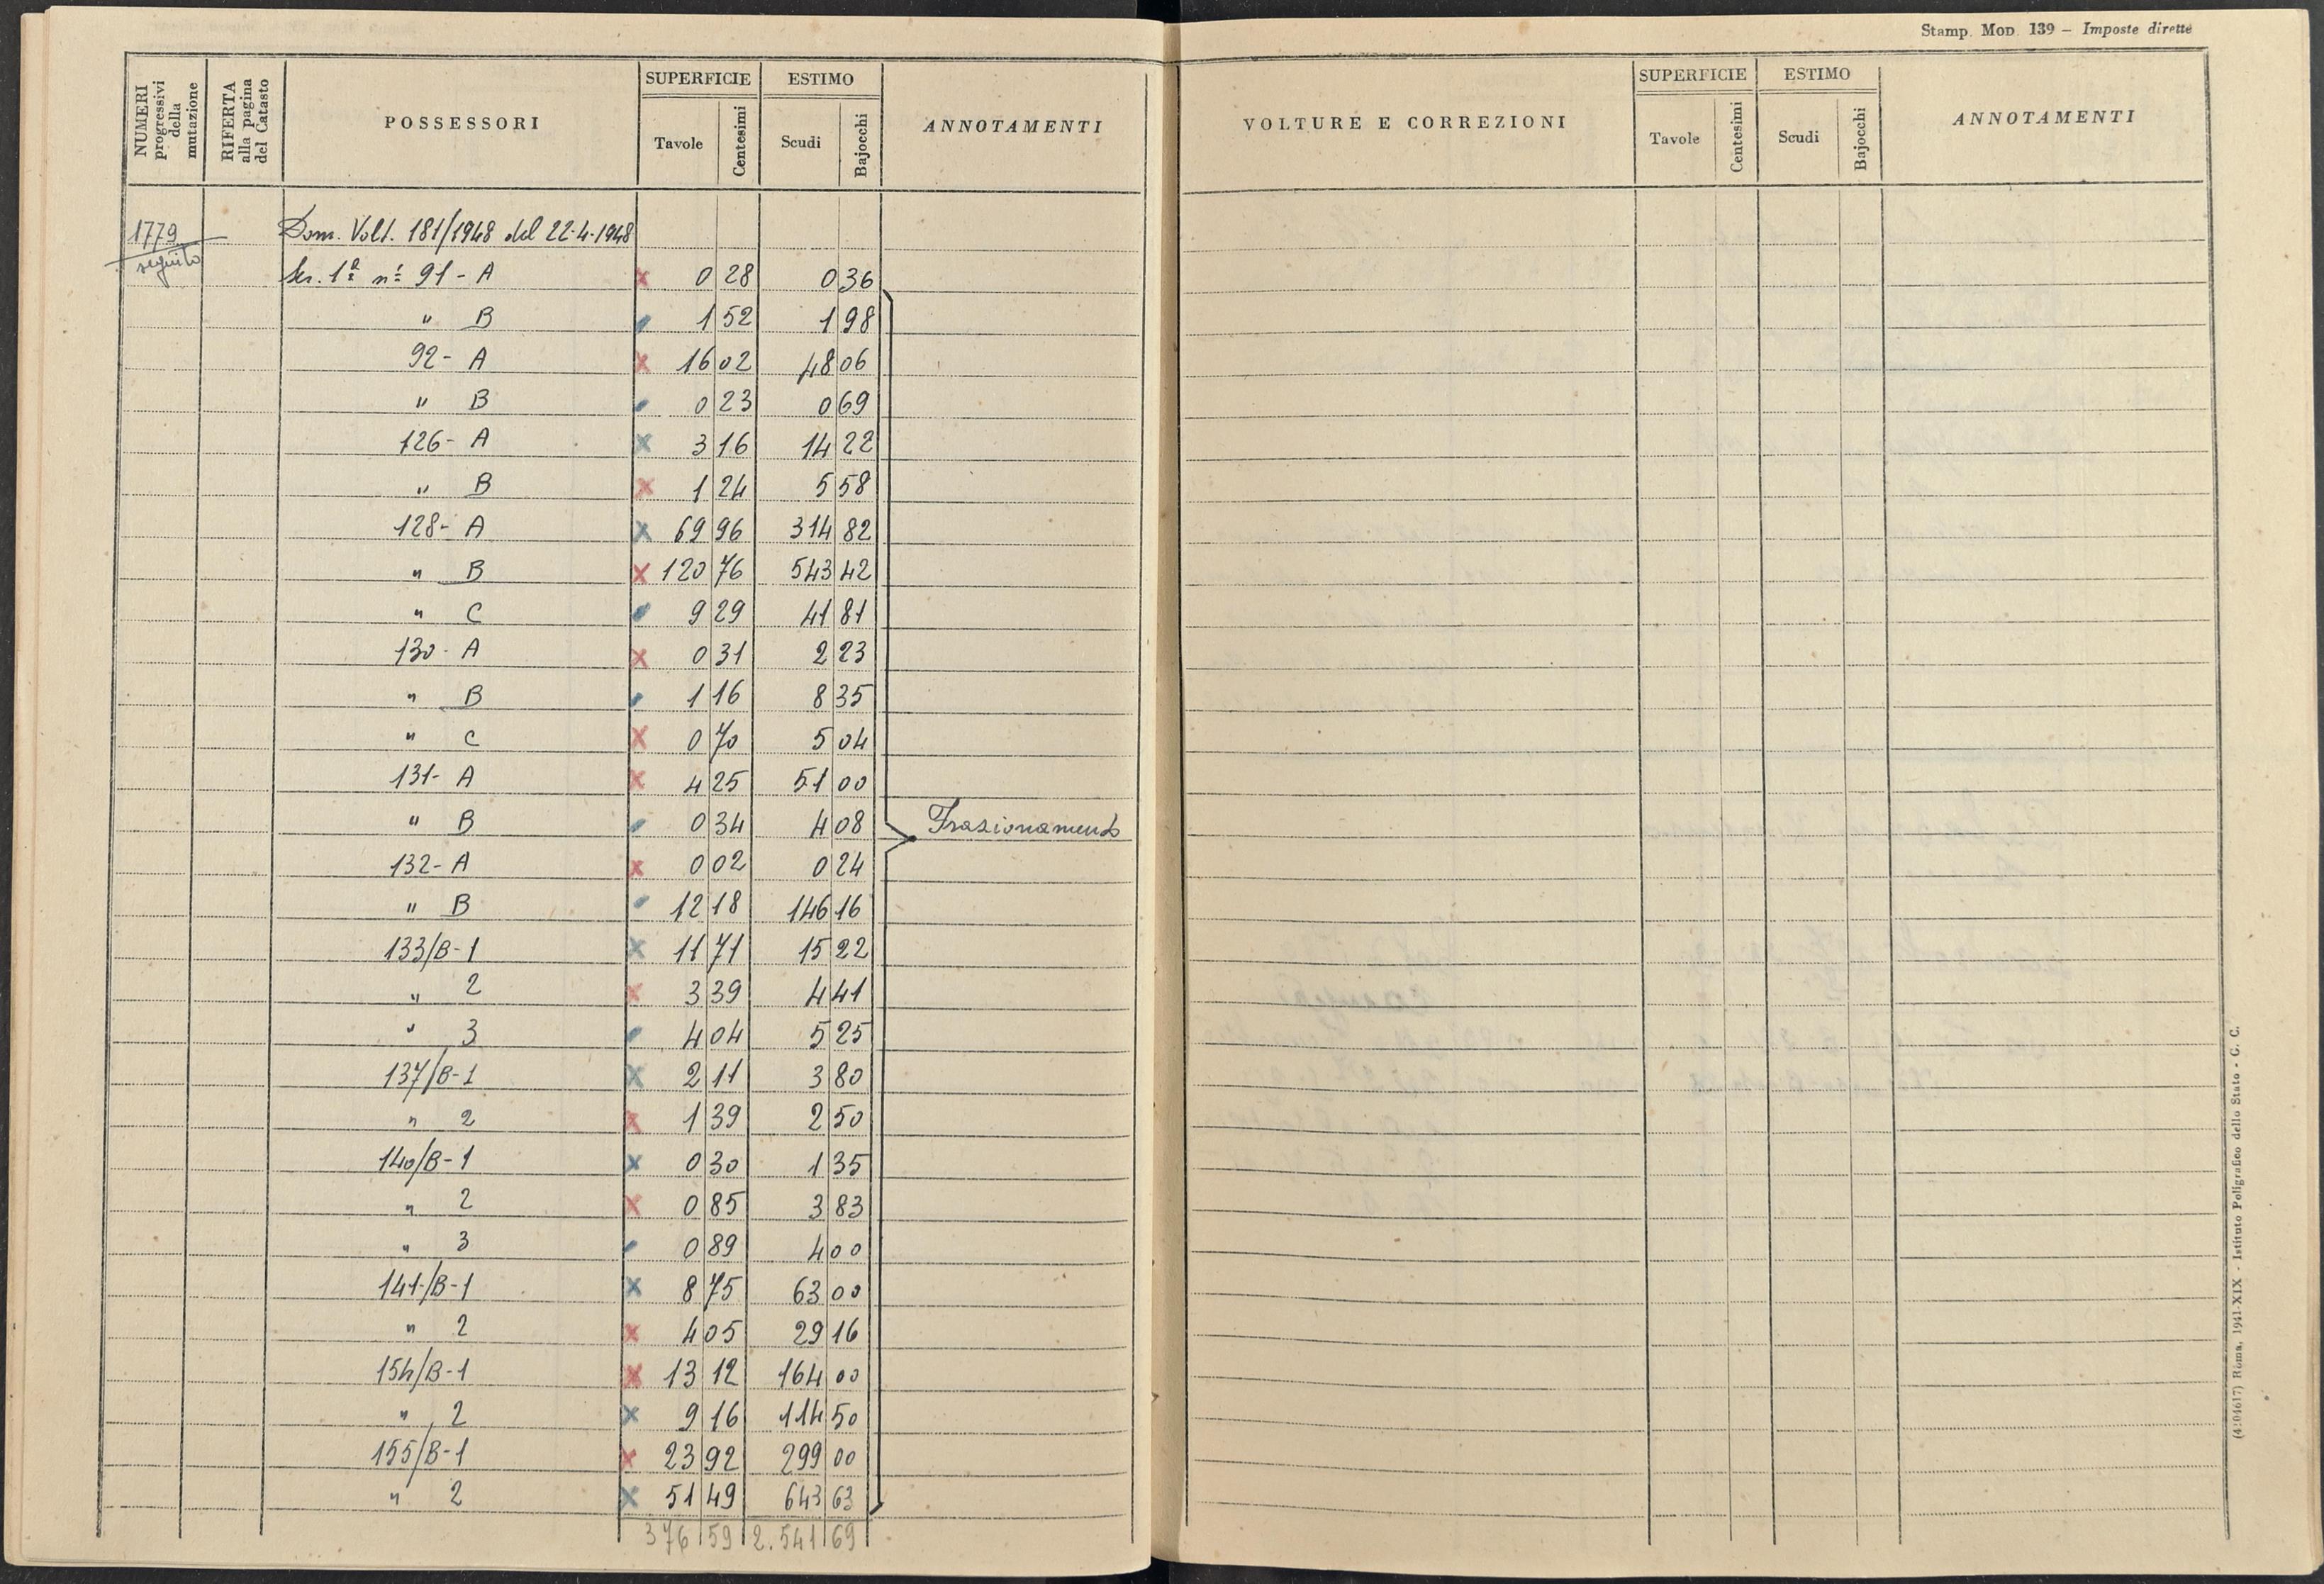 Stamp. Mod. 139 – Imposte dirette
NUMERI progressivi della mutazione
RIFERTA alla pagina del Catasto
POSSESSORI
SUPERFICIE
Tavole
Centesimi
ESTIMO
Scudi
Bajocchi
ANNOTAMENTI
VOLTURE E CORREZIONI
SUPERFICIE
Tavole
Centesimi
ESTIMO
Scudi
Bajocchi
ANNOTAMENTI
1779 Dom. Volt. 181/1948 del 22-4-1948
seguito
Sez. 1ª nⁱ 91 - A x 0 28 0 36
" B 1 52 1 98
92 - A x 16 02 48 06
" B 0 23 0 69
126 - A x 3 16 14 22
" B x 1 24 5 58
128 - A x 69 96 314 82
" B x 120 76 543 42
" C 9 29 41 81
130 - A x 0 31 2 23
" B 1 16 8 35
" C x 0 70 5 04
131 - A x 4 25 51 00
" B 0 34 4 08 Frazionamento
132 - A x 0 02 0 24
" B 12 18 146 16
133/B-1 x 11 71 15 22
" 2 x 3 39 4 41
" 3 4 04 5 25
137/B-1 x 2 11 3 80
" 2 x 1 39 2 50
140/B-1 x 0 30 1 35
" 2 x 0 85 3 83
" 3 0 89 4 00
141/B-1 x 8 75 63 00
" 2 x 4 05 29 16
154/B-1 x 13 12 164 00
" 2 x 9 16 114 50
155/B-1 x 23 92 299 00
" 2 x 51 49 643 63
376 59 2.541 69
Roma, 1941-XIX - Istituto Poligrafico dello Stato - G. C.